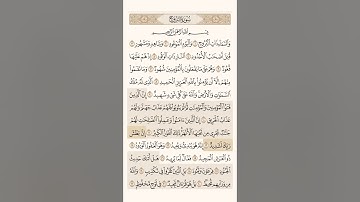 سُورَةُ البُرُوجِ
بِسْمِ اللَّهِ الرَّحْمَٰنِ الرَّحِيمِ
وَالسَّمَاءِ ذَاتِ الْبُرُوجِ ١ وَالْيَوْمِ الْمَوْعُودِ ٢ وَشَاهِدٍ وَمَشْهُودٍ ٣
قُتِلَ أَصْحَابُ الْأُخْدُودِ ٤ النَّارِ ذَاتِ الْوَقُودِ ٥ إِذْ هُمْ عَلَيْهَا
قُعُودٌ ٦ وَهُمْ عَلَىٰ مَا يَفْعَلُونَ بِالْمُؤْمِنِينَ شُهُودٌ ٧ وَمَا نَقَمُوا
مِنْهُمْ إِلَّا أَن يُؤْمِنُوا بِاللَّهِ الْعَزِيزِ الْحَمِيدِ ٨ الَّذِي لَهُ مُلْكُ
السَّمَاوَاتِ وَالْأَرْضِ وَاللَّهُ عَلَىٰ كُلِّ شَيْءٍ شَهِيدٌ ٩ إِنَّ الَّذِينَ
فَتَنُوا الْمُؤْمِنِينَ وَالْمُؤْمِنَاتِ ثُمَّ لَمْ يَتُوبُوا فَلَهُمْ عَذَابُ جَهَنَّمَ وَلَهُمْ
عَذَابُ الْحَرِيقِ ١٠ إِنَّ الَّذِينَ آمَنُوا وَعَمِلُوا الصَّالِحَاتِ لَهُمْ
جَنَّاتٌ تَجْرِي مِن تَحْتِهَا الْأَنْهَارُ ذَٰلِكَ الْفَوْزُ الْكَبِيرُ ١١ إِنَّ بَطْشَ
رَبِّكَ لَشَدِيدٌ ١٢ إِنَّهُ هُوَ يُبْدِئُ وَيُعِيدُ ١٣ وَهُوَ الْغَفُورُ الْوَدُودُ ١٤
ذُو الْعَرْشِ الْمَجِيدُ ١٥ فَعَّالٌ لِّمَا يُرِيدُ ١٦ هَلْ أَتَاكَ حَدِيثُ
الْجُنُودِ ١٧ فِرْعَوْنَ وَثَمُودَ ١٨ بَلِ الَّذِينَ كَفَرُوا فِي تَكْذِيبٍ ١٩ وَاللَّهُ
مِن وَرَائِهِم مُّحِيطٌ ٢٠ بَلْ هُوَ قُرْآنٌ مَّجِيدٌ ٢١ فِي لَوْحٍ مَّحْفُوظٍ ٢٢